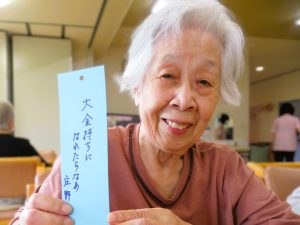 大金持ちに
なれたらなあ
庄野